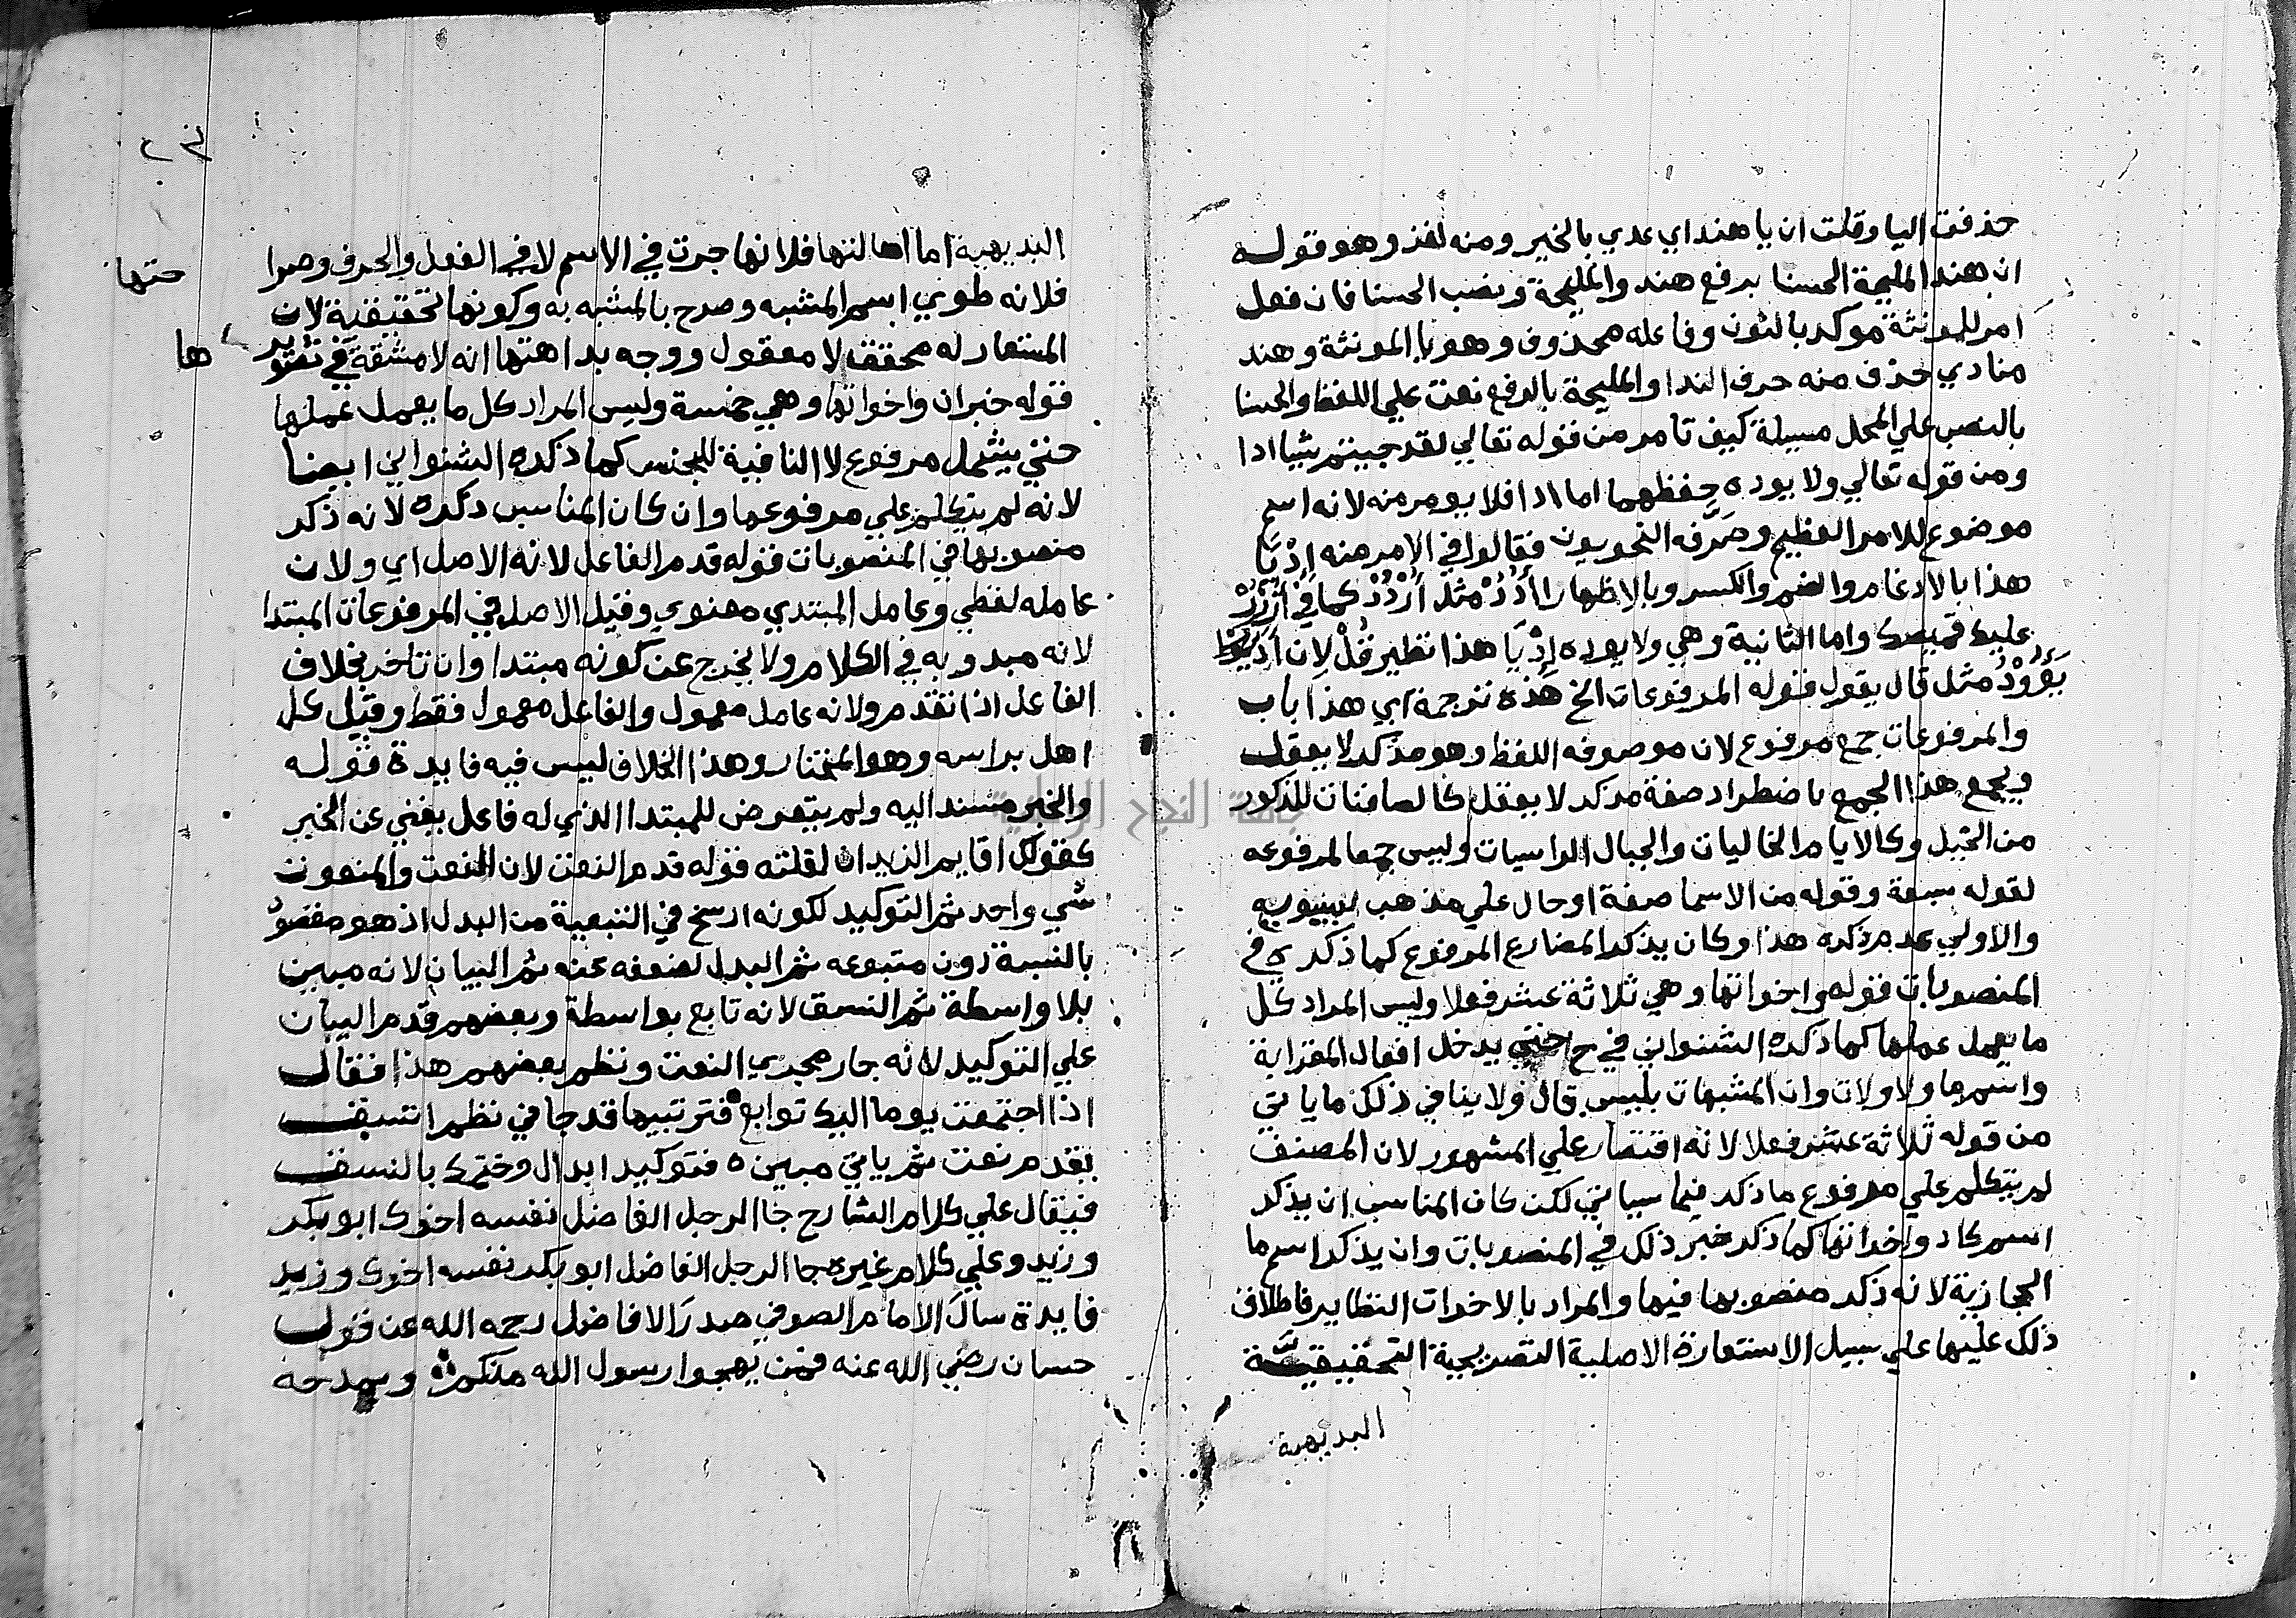 حذفت اليا وقلت ان يا هند اي عدي بالخير ومنه لغز وهو قوله
ان هند المليحة الحسنا برفع هند والمليحة ونصب الحسنا فان فعل
امر للمونثة موكد بالنون وفاعله محذوف وهو يا المونثة وهند
منادي حذف منه حرف الندا والمليحة بالرفع نعت علي اللفظ والحسنا
بالنصب علي المحل مسيلة كيف تامر من قوله تعالي لقد جيتم شيا ادا
ومن قوله تعالي ولا يوده حفظهما اما ادا فلا يومر منه لانه اسم
موضوع للامر العظيم وصرفه النحويون فقالوا في الامر منه اد يا
هذا بالادغام والضم والكسر وبالاظهار اأدد مثل اردد كما في ازرر
عليك قميصك واما الثانية وهي ولا يوده اد يا هذا نظير قل لان اد
يؤود مثل قال يقول قوله المرفوعات الخ هذه ترجمة اي هذا باب
والمرفوعات جمع مرفوع لان موصوفه اللفظ وهو مذكر لا يعقل
ويجمع هذا الجمع باضطراد صفة مذكر لا يعقل كالصافنات للذكور
من الخيل وكالايام الخاليات والجبال الراسيات وليس جمعا لمرفوعه
لقوله سبعة وقوله من الاسما صفة او حال علي مذهب سيبويه
والاولي عدم ذكره هذا وكان يذكر المضارع المرفوع كما ذكره في
المنصوبات قوله واخواتها وهي ثلاثة عشر فعلا وليس المراد كل
ما يعمل عملها كما ذكره الشنواني في ح حتي يدخل افعال المقرابة
واسم ما ولا ولات وان المشبهات بليس قال ولا ينافي ذلك ما ياتي
من قوله ثلاثة عشر فعلا لانه اقتصار علي المشهور لان المصنف
لم يتكلم علي مرفوع ما ذكر فيما سياتي لكن كان المناسب ان يذكر
اسم كاد واخواتها كما ذكر خبر ذلك في المنصوبات وان يذكر اسم ما
الحجازية لانه ذكر منصوبها فيها والمراد بالاخوات النظاير فاطلاق
ذلك عليها علي سبيل الاستعارة الاصلية التصريحية التحقيقية
البديهية
البديهية اما اصالتها فلانها جرت في الاسم لا في الفعل والحرف وصرا
حتها
فلانه طوي اسم المشبه وصرح بالمشبه به وكونها تحقيقية لان
المستعار له محقق لا معقول ووجه بداهتها انه لا مشقة في تقرير
ها
قوله خبر ان واخواتها وهي خمسة وليس المراد كل ما يعمل عملها
حتي يشمل مرفوع لا النافية للجنس كما ذكره الشنواني ايضا
لانه لم يتكلم علي مرفوعها وان كان المناسب ذكره لانه ذكر
منصوبها في المنصوبات قوله قدم الفاعل لانه الاصل اي ولان
عامله لفظي وعامل المبتدي معنوي وقيل الاصل في المرفوعات المبتدا
لانه مبدو به في الكلام ولا يخرج عن كونه مبتدا وان تاخر بخلاف
الفاعل اذا تقدم ولانه عامل معمول والفاعل معمول فقط وقيل كل
اصل براسه وهو المختار وهذا الخلاف ليس فيه فايدة قوله
والخبر مسند اليه ولم يتعرض للمبتدا الذي له فاعل يغني عن الخبر
كقولك اقايم الزيدان لقلته قوله قدم النعت لان النعت والمنعوت
شي واحد ثم التوكيد لكونه ارسخ في التبعية من البدل اذ هو مقصود
بالنسبة دون متبوعه ثم البدل لضعفه عنه ثم البيان لانه مبين
بلا واسطة ثم النسق لانه تابع بواسطة وبعضهم قدم البيان
علي التوكيد لانه جار مجري النعت ونظم بعضهم هذا فقال
اذا اجتمعت يوما اليك توابع فترتيبها قد جا في نظم اتسق
بقدم نعت ثم ياتي مبينه فتوكيد ابدال وختمك بالنسق
فيقال علي كلام الشارح جا الرجل الفاضل نفسه اخوك ابو بكر
وزيد وعلي كلام غيره جا الرجل الفاضل ابو بكر نفسه اخوك وزيد
فايدة سال الامام الصوفي صدر الافاضل رحمه الله عن قول
حسان رضي الله عنه فمن يهجوا رسول الله منكم ويمدحه
جامعة النجاح الوطنية